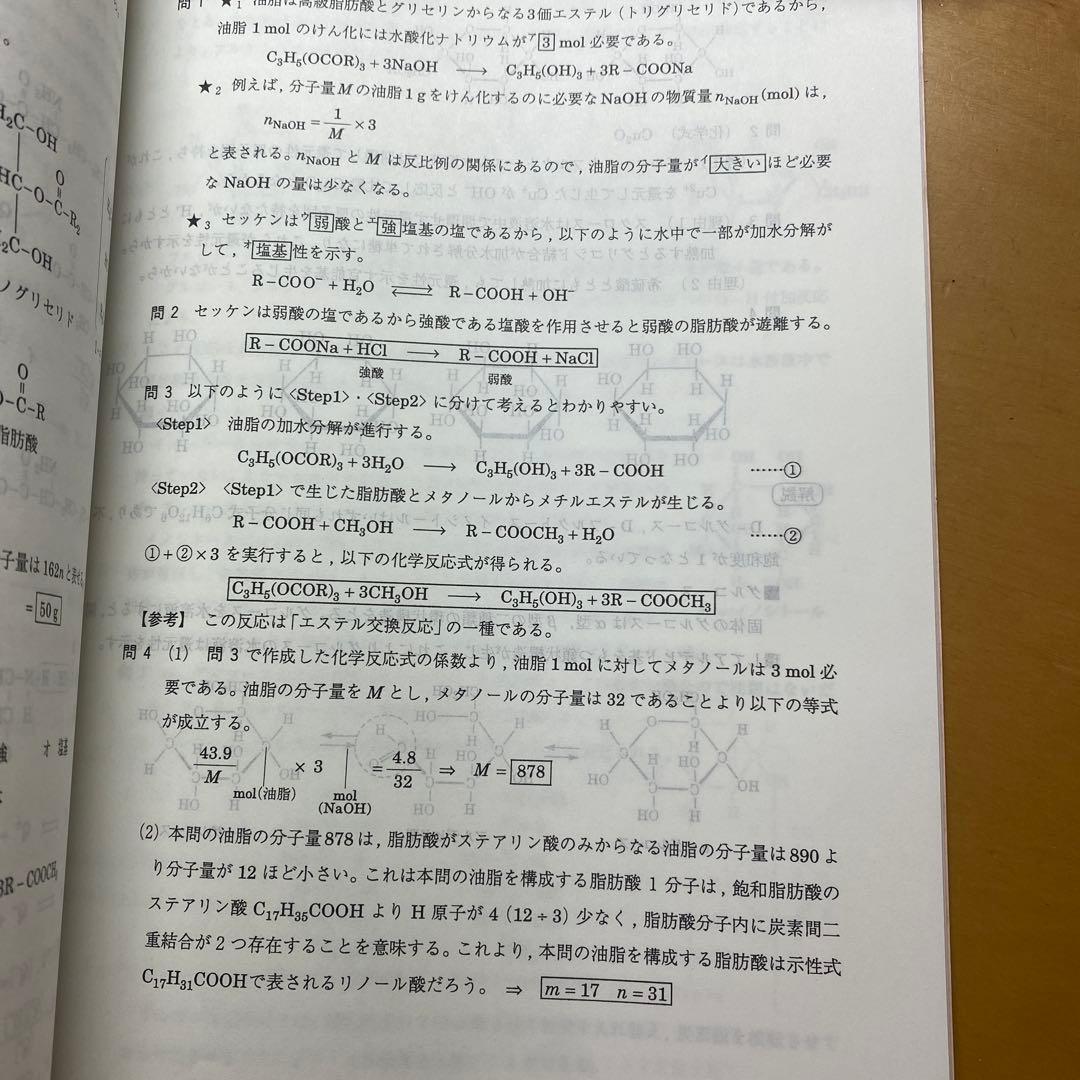 H₂C－OH
HC－O－C－R₂
O
₂C－OH
ノグリセリド
O
O－C－R
脂肪酸
子量は162nと表せる
＝50g
強 オ 塩基
3R－COOCH₃
問1 ★1 油脂は高級脂肪酸とグリセリンからなる3価エステル（トリグリセリド）であるから，
油脂1molのけん化には水酸化ナトリウムがア3mol必要である。
C₃H₅(OCOR)₃＋3NaOH ⟶ C₃H₅(OH)₃＋3R－COONa
★2 例えば，分子量Mの油脂1gをけん化するのに必要なNaOHの物質量n_NaOH(mol)は，
n_NaOH＝1/M×3
と表される。n_NaOHとMは反比例の関係にあるので，油脂の分子量がイ大きいほど必要
なNaOHの量は少なくなる。
★3 セッケンはウ弱酸とエ強塩基の塩であるから，以下のように水中で一部が加水分解が
して，オ塩基性を示す。
R－COO⁻＋H₂O ⇄ R－COOH＋OH⁻
問2 セッケンは弱酸の塩であるから強酸である塩酸を作用させると弱酸の脂肪酸が遊離する。
R－COONa＋HCl ⟶ R－COOH＋NaCl
強酸 弱酸
問3 以下のように〈Step1〉・〈Step2〉に分けて考えるとわかりやすい。
〈Step1〉 油脂の加水分解が進行する。
C₃H₅(OCOR)₃＋3H₂O ⟶ C₃H₅(OH)₃＋3R－COOH ……①
〈Step2〉 〈Step1〉で生じた脂肪酸とメタノールからメチルエステルが生じる。
R－COOH＋CH₃OH ⟶ R－COOCH₃＋H₂O ……②
①＋②×3を実行すると，以下の化学反応式が得られる。
C₃H₅(OCOR)₃＋3CH₃OH ⟶ C₃H₅(OH)₃＋3R－COOCH₃
【参考】 この反応は「エステル交換反応」の一種である。
問4 (1) 問3で作成した化学反応式の係数より，油脂1molに対してメタノールは3mol必
要である。油脂の分子量をMとし，メタノールの分子量は32であることより以下の等式
が成立する。
43.9/M × 3 ＝ 4.8/32 ⇒ M＝878
mol(油脂) mol(NaOH)
(2) 本問の油脂の分子量878は，脂肪酸がステアリン酸のみからなる油脂の分子量は890よ
り分子量が12ほど小さい。これは本問の油脂を構成する脂肪酸1分子は，飽和脂肪酸の
ステアリン酸C₁₇H₃₅COOHよりH原子が4（12÷3）少なく，脂肪酸分子内に炭素間二
重結合が2つ存在することを意味する。これより，本問の油脂を構成する脂肪酸は示性式
C₁₇H₃₁COOHで表されるリノール酸だろう。 ⇒ m＝17 n＝31